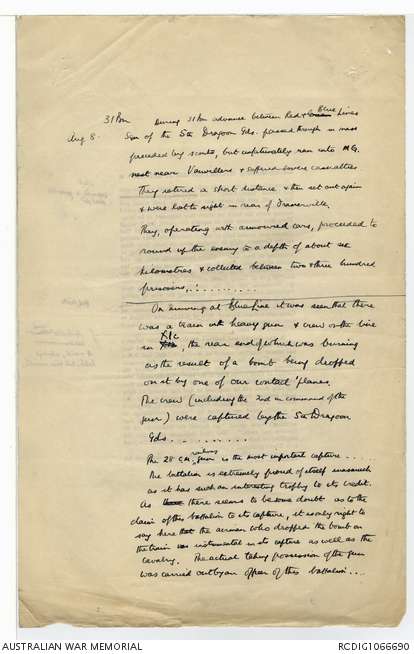 31 Bn During 31 Bn advance between Red & Blue Lines
Aug 8. Sqn of the 5th Dragoon Gds. passed through in mass
preceded by scouts, but unfortunately ran into M.G.
nest near Vauvillers & suffered severe casualties
They retired a short distance & then set out again
& were lost to sight in rear of Framerville.
They, operating with armoured cars, proceeded to
round up the enemy to a depth of about six
kilometres & collected between two & three hundred
prisoners, . . . . . . . . .
On arriving at Blue Line it was seen that there
was a train with heavy gun & crew on the line
in X1c, the rear end of which was burning
as the result of a bomb being dropped
on it by one of our contact 'planes.
The crew (including the 2nd in command of the
gun) were captured by the 5th Dragoon
Gds. . . . . . . . . . .
The 28 cm railway gun is the most important capture . . . . .
The battalion is extremely proud of itself inasmuch
as it has such an interesting trophy to its credit.
As there seems to be some doubt as to the
claim of this battalion to its capture, it is only right to
say here that the airman who dropped the bomb on
the train was instrumental in its capture as well as the
cavalry. The actual taking possession of the gun
was carried out by an officer of this battalion . . .
AUSTRALIAN WAR MEMORIAL
RCDIG1066690